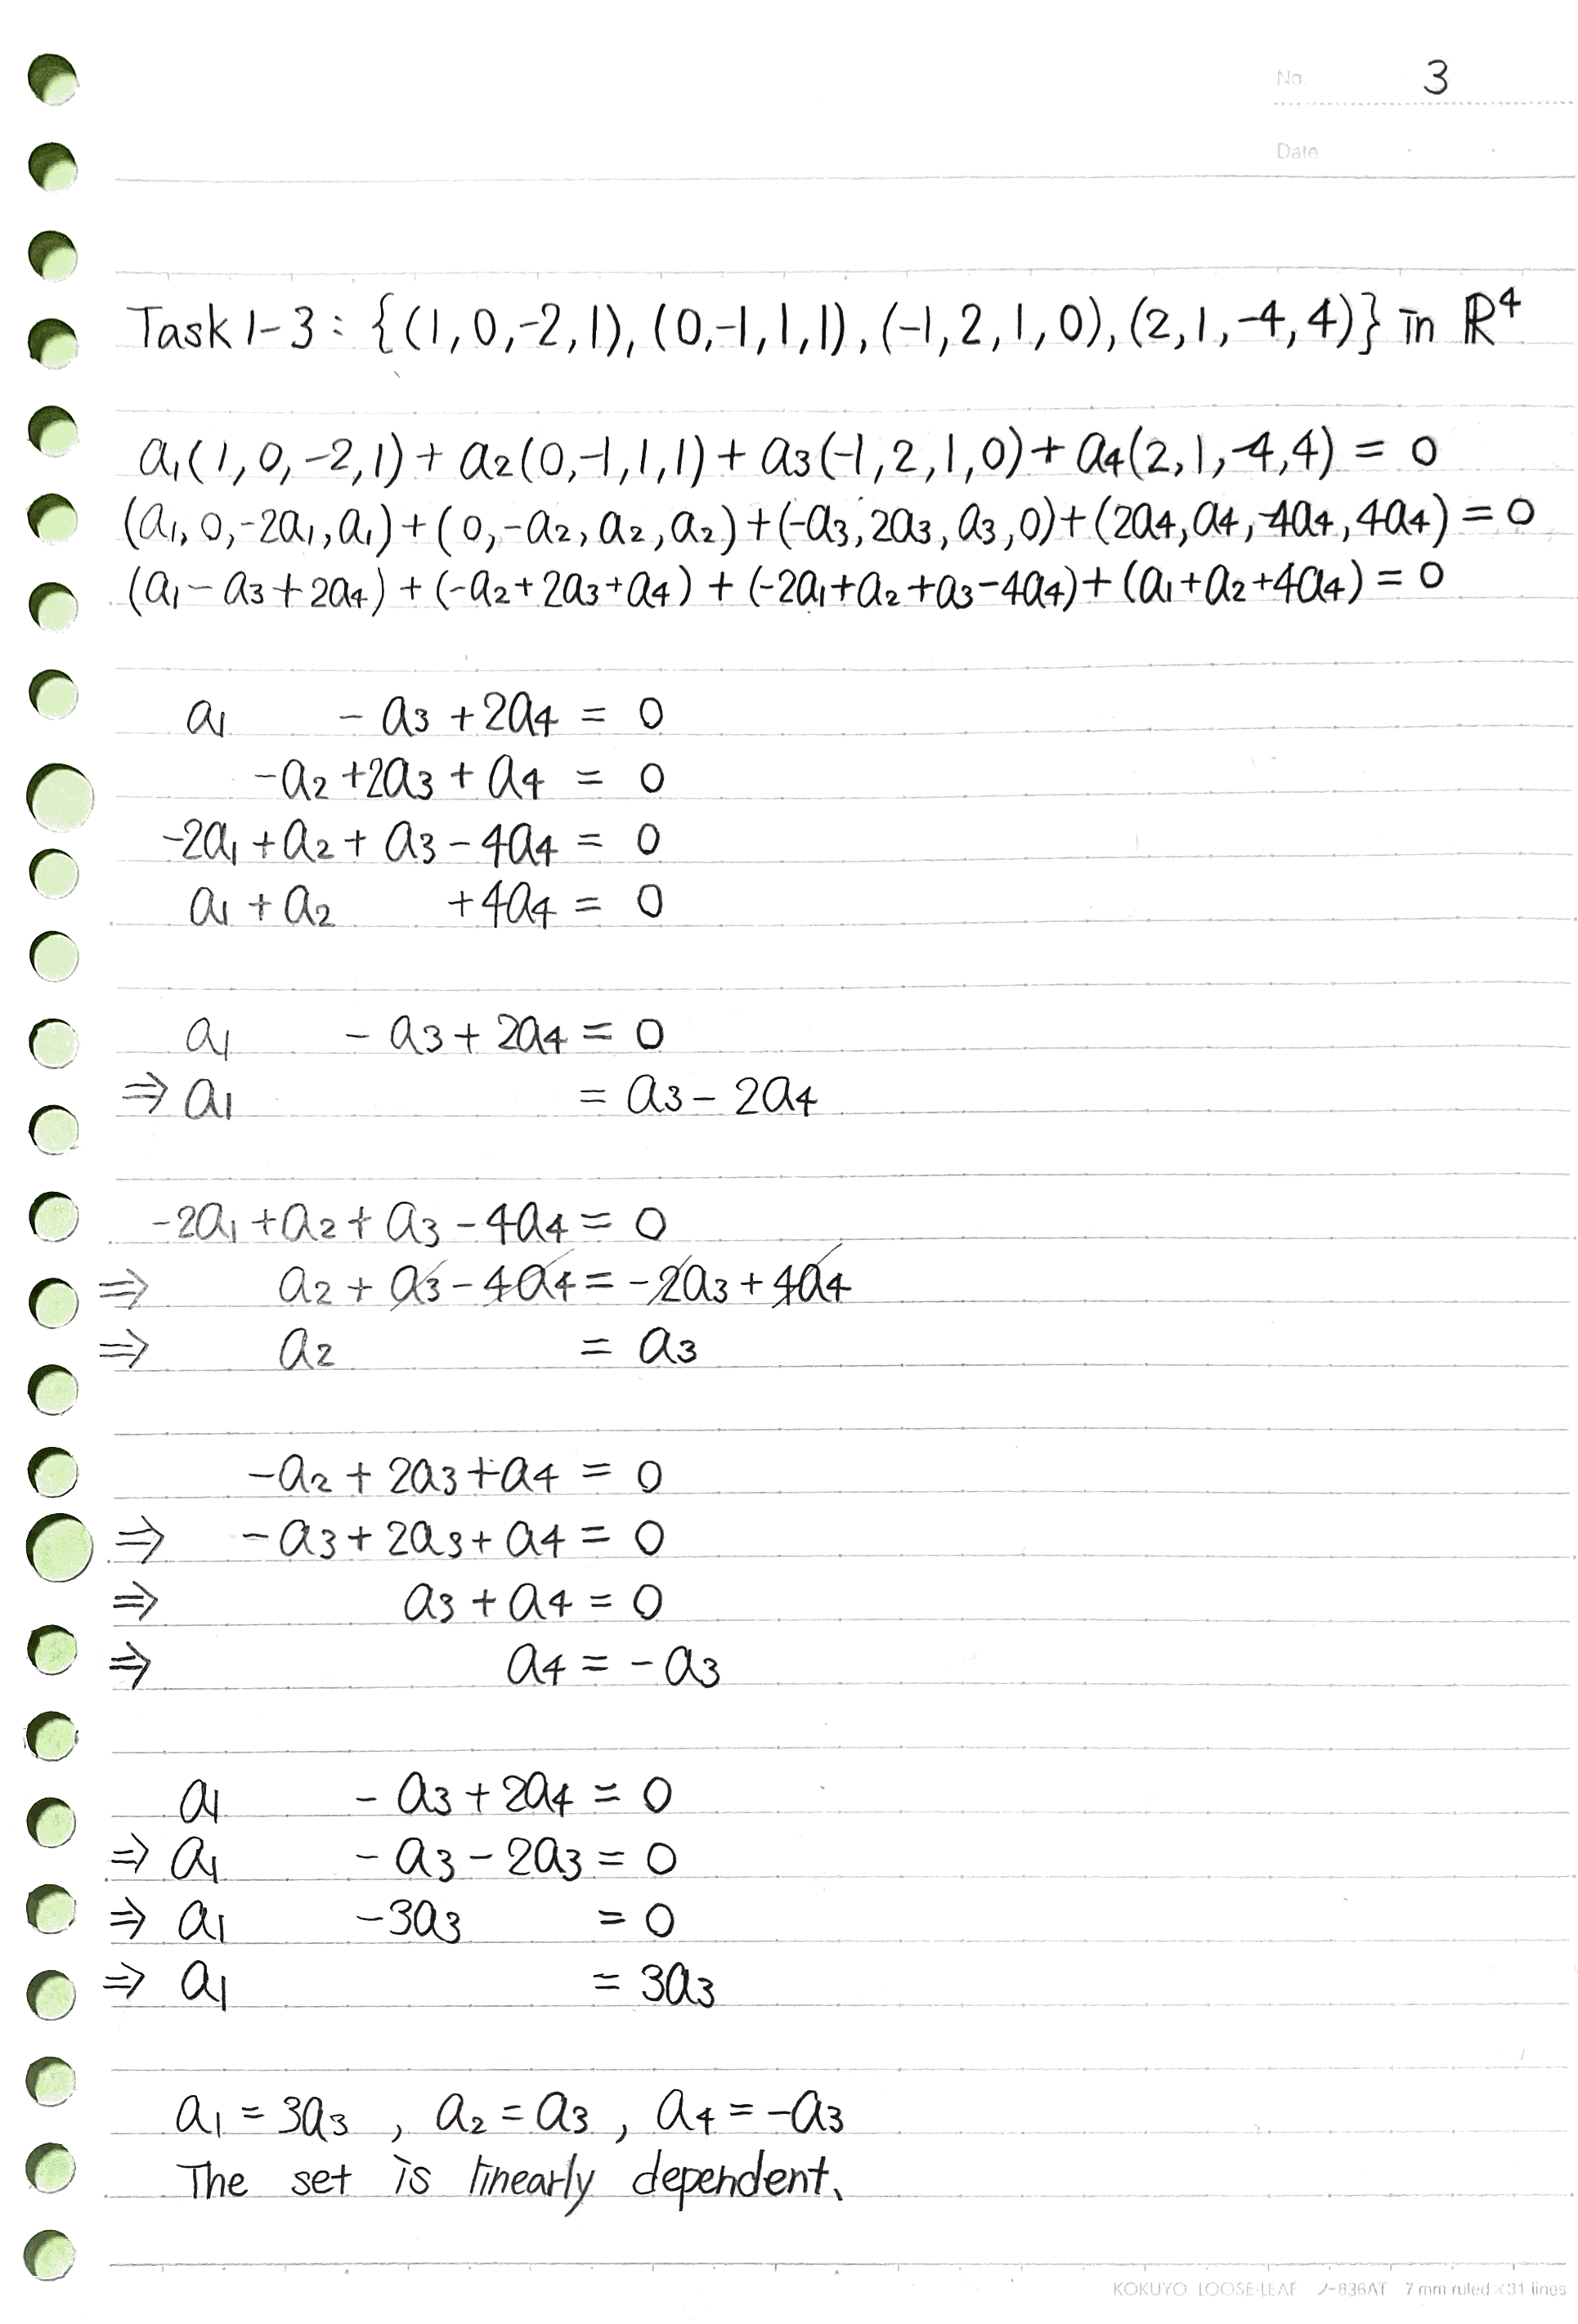 No. 3
Date
Task 1-3: {(1,0,-2,1), (0,-1,1,1), (-1,2,1,0), (2,1,-4,4)} in ℝ⁴
a₁(1,0,-2,1) + a₂(0,-1,1,1) + a₃(-1,2,1,0) + a₄(2,1,-4,4) = 0
(a₁,0,-2a₁,a₁) + (0,-a₂,a₂,a₂) + (-a₃,2a₃,a₃,0) + (2a₄,a₄,-4a₄,4a₄) = 0
(a₁-a₃+2a₄) + (-a₂+2a₃+a₄) + (-2a₁+a₂+a₃-4a₄) + (a₁+a₂+4a₄) = 0
a₁ - a₃ + 2a₄ = 0
-a₂ + 2a₃ + a₄ = 0
-2a₁ + a₂ + a₃ - 4a₄ = 0
a₁ + a₂ + 4a₄ = 0
a₁ - a₃ + 2a₄ = 0
⇒ a₁ = a₃ - 2a₄
-2a₁ + a₂ + a₃ - 4a₄ = 0
⇒ a₂ + a₃ - 4a₄ = -2a₃ + 4a₄
⇒ a₂ = a₃
-a₂ + 2a₃ + a₄ = 0
⇒ -a₃ + 2a₃ + a₄ = 0
⇒ a₃ + a₄ = 0
⇒ a₄ = -a₃
a₁ - a₃ + 2a₄ = 0
⇒ a₁ - a₃ - 2a₃ = 0
⇒ a₁ -3a₃ = 0
⇒ a₁ = 3a₃
a₁ = 3a₃ , a₂ = a₃ , a₄ = -a₃
The set is linearly dependent.
KOKUYO LOOSE-LEAF ノ-836AT 7 mm ruled × 31 lines